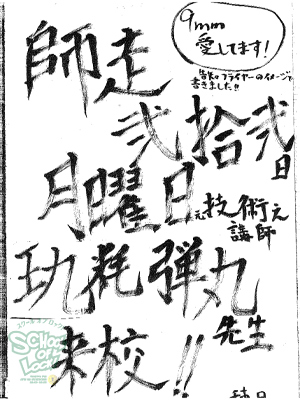 9mm
愛してます!
昔のフライヤーのイメージで
書きました!!
師走
弐拾弐日
月曜日
技術
講師
玖粍弾丸
先生
来校!!
SCHOOL
OF
LOCK!